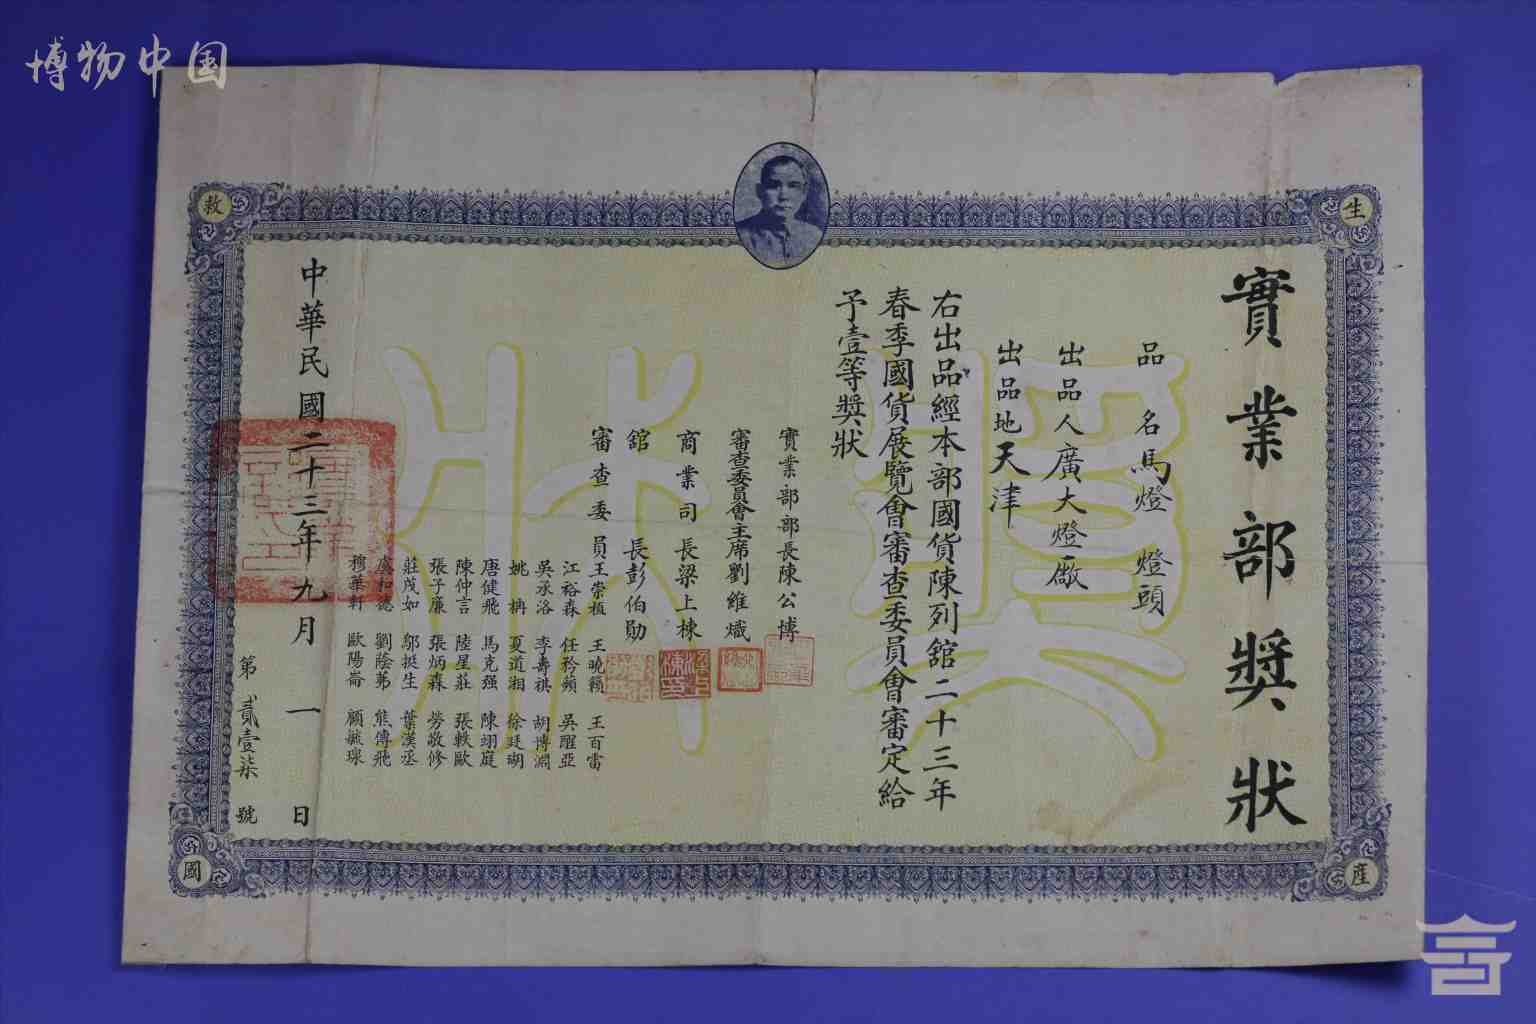 博物中国
生
產
救
國
實業部獎狀
品 名 馬燈 燈頭
出品人 廣大燈廠
出品地 天津
右出品經本部國貨陳列舘二十三年
春季國貨展覽會審查委員會審定給
予壹等獎狀
實業部部長陳公博
審查委員會主席劉維熾
商業司長梁上棟
舘 長彭伯勛
審查委員王崇植 王曉籟 王百雷
江裕森 任矜蘋 吳醒亞
吳承洛 李壽祺 胡博淵
姚枬 夏道湘 徐廷瑚
唐健飛 馬克强 陳翊庭
陳仲言 陸星莊 張軼歐
張子廉 張炳森 勞敬修
莊茂如 鄔挺生 葉漢丞
虞和德 劉蔭茀 熊傳飛
穆華軒 歐陽崙 顧毓瑔
中華民國二十三年九月一日
第貳壹柒號
獎狀